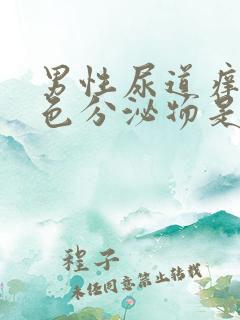 男性尿道痒
色分泌物是
程子
未经同意禁止转载